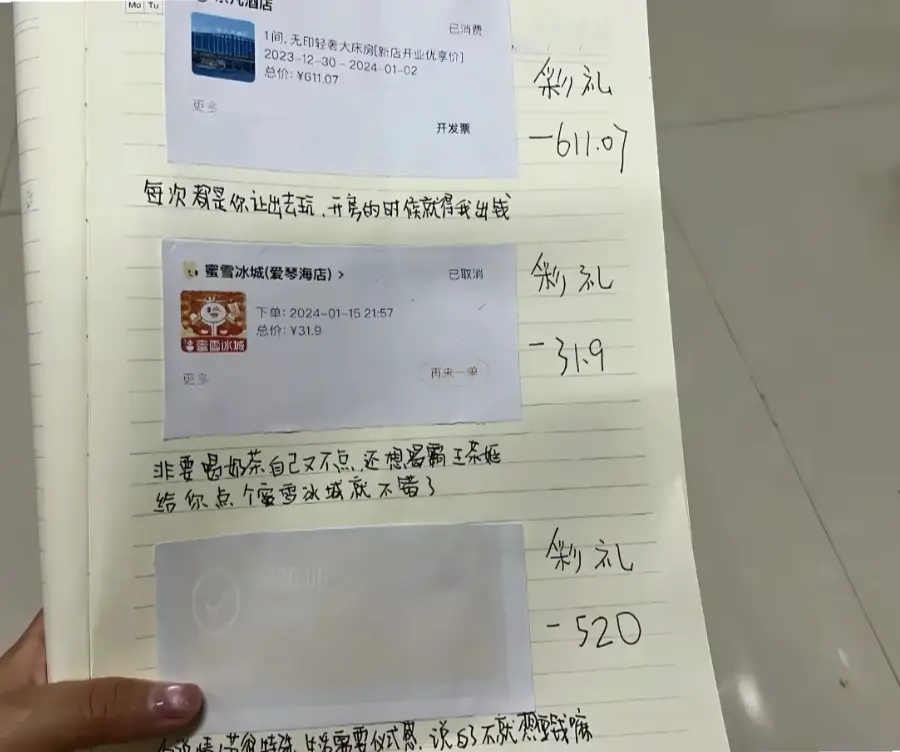 Mo Tu
酒店
已消费
1间, 无印轻奢大床房[新店开业优享价]
2023-12-30 - 2024-01-02
总价: ¥611.07
更多
开发票
彩礼
-611.07
每次都是你让出去玩、开房的时候就得我出钱
蜜雪冰城(爱琴海店) >
已取消
下单: 2024-01-15 21:57
总价: ¥31.9
蜜雪冰城
更多
再来一单
彩礼
-31.9
非要喝奶茶自己又不点,还想喝霸王茶姬
给你点个蜜雪冰城就不错了
彩礼
-520
生活需要仪式感,说白了不就想要钱嘛